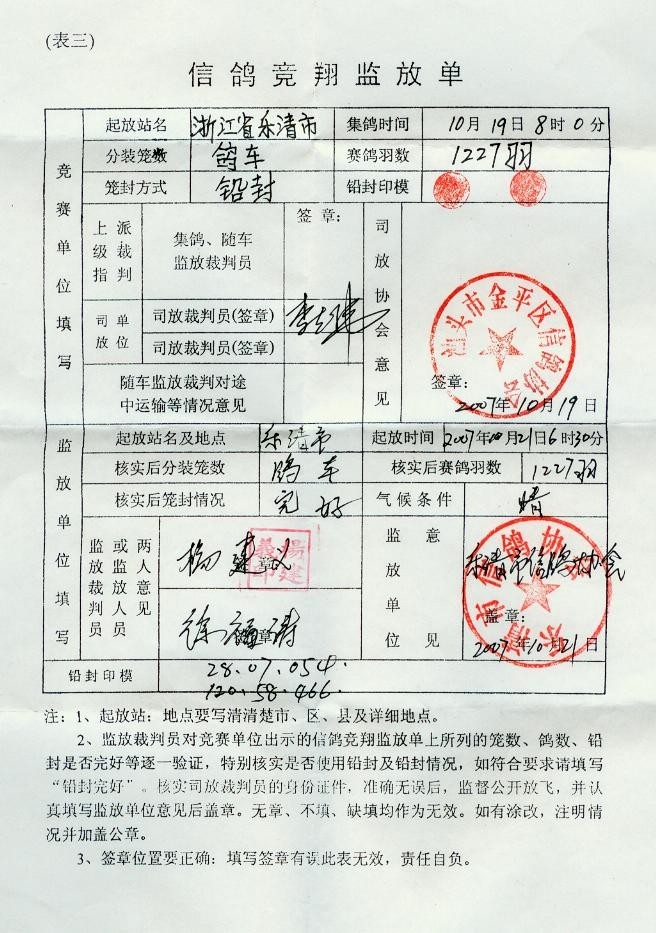 (表三)
信鸽竞翔监放单
竞赛单位填写
起放站名 浙江省乐清市 集鸽时间 10月19日8时0分
分装笼数 鸽车 赛鸽羽数 1227羽
笼封方式 铅封 铅封印模
上级指派裁判 集鸽、随车监放裁判员 签章：
司放单位 司放裁判员(签章)
司放裁判员(签章)
随车监放裁判对途中运输等情况意见
司放协会意见
汕头市金平区信鸽协会
签章：
2007年10月19日
监放单位填写
起放站名及地点 乐清市 起放时间 2007年10月21日6时30分
核实后分装笼数 鸽车 核实后赛鸽羽数 1227羽
核实后笼封情况 完好 气候条件 晴
监放裁判员或监放人员两人意见
杨建义 章
楊建義印
徐福清 章
监放单位意见
乐清市信鸽协会
乐清市信鸽协会
盖章：
2007年10月21日
铅封印模 28.07.054.
120.58.466.
注：1、起放站：地点要写清清楚市、区、县及详细地点。
2、监放裁判员对竞赛单位出示的信鸽竞翔监放单上所列的笼数、鸽数、铅
封是否完好等逐一验证，特别核实是否使用铅封及铅封情况，如符合要求请填写
“铅封完好”。核实司放裁判员的身份证件，准确无误后，监督公开放飞，并认
真填写监放单位意见后盖章。无章、不填、缺填均作为无效。如有涂改，注明情
况并加盖公章。
3、签章位置要正确：填写签章有误此表无效，责任自负。